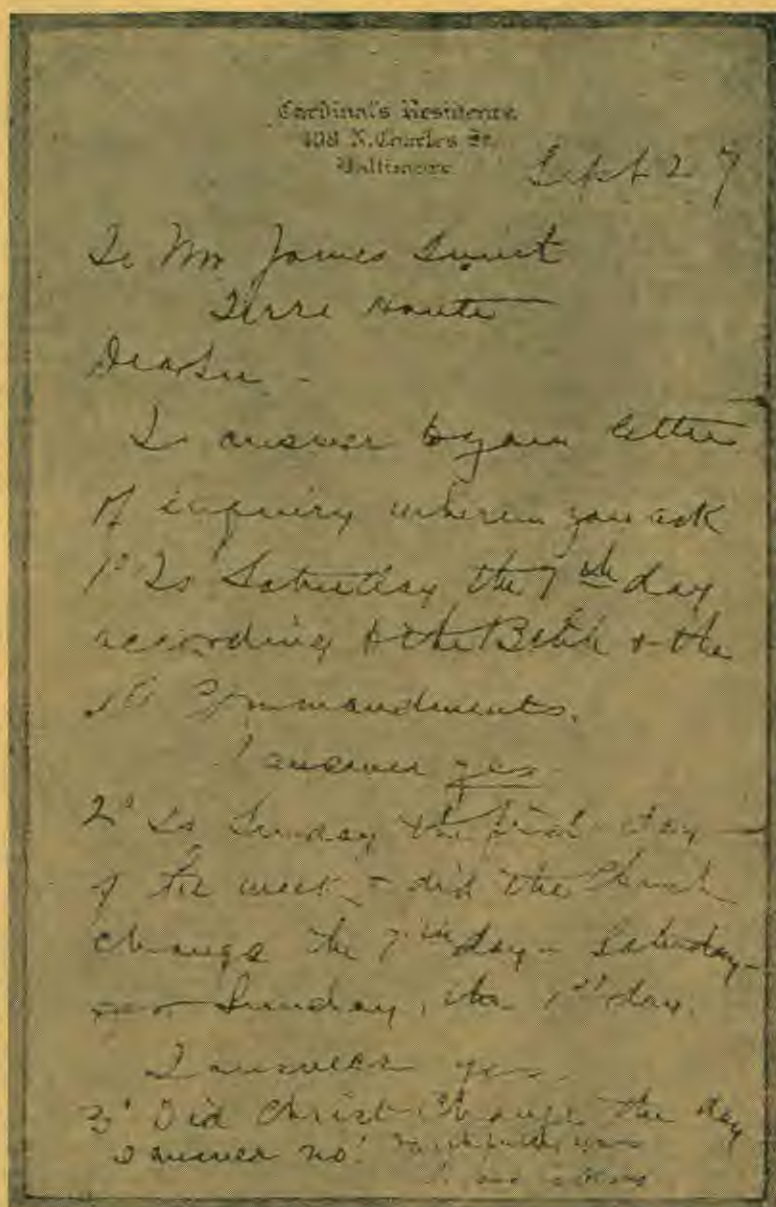 Cardinal's Residence
408 N. Charles St.
Baltimore
Sept 27
To Mr James
Terre Haute
Dear Sir -
In answer to your letter
of inquiry wherein you ask
1° Is Saturday the 7th day
according to the Bible & the
10 Commandments.
I answer yes
2° Is Sunday the first day
of the week & did the Church
change the 7th day - Saturday -
for Sunday, the 1st day.
I answer yes
3° Did Christ change the day
I answer no! Faithfully yours